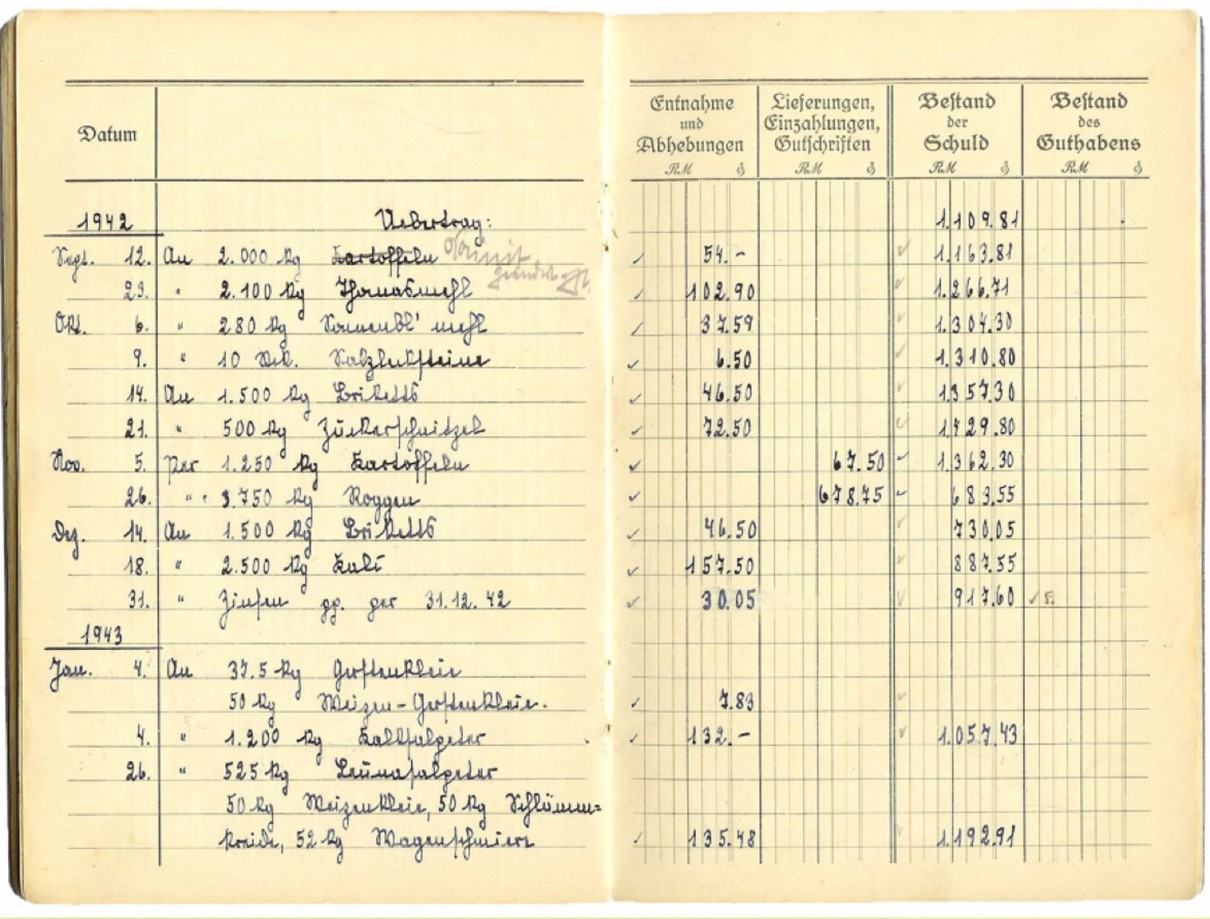 Datum
Entnahme und Abhebungen RM ₰
Lieferungen, Einzahlungen, Gutschriften RM ₰
Bestand der Schuld RM ₰
Bestand des Guthabens RM ₰
1942 Uebertrag: 1.109.81
Sept. 12. An 2.000 kg Kartoffeln 54.- 1.163.81
23. " 2.100 kg Thomasmehl 102.90 1.266.71
Okt. 6. " 280 kg Sonnenbl' mehl 37.59 1.304.30
9. " 10 Salzlecksteine 6.50 1.310.80
14. An 1.500 kg Briketts 46.50 1.357.30
21. " 500 kg Zuckerschnitzel 72.50 1.429.80
Nov. 5. per 1.250 kg Kartoffeln 67.50 1.362.30
26. " " 3.750 kg Roggen 678.75 683.55
Dez. 14. An 1.500 kg Briketts 46.50 730.05
18. " 2.500 kg Kali 887.55 157.50
31. " Zinsen per 31.12.42 30.05 917.60
1943
Jan. 4. An 37.5 kg Gerstenkleie
50 kg Weizen-Gerstenkleie. 7.83
4. " 1.200 kg Kalksalpeter 132.- 1.057.43
26. " 525 kg Leunasalpeter
50 kg Weizenkleie, 50 kg Schlämm=
kreide, 52 kg Wagenschmiere 135.48 1.192.91